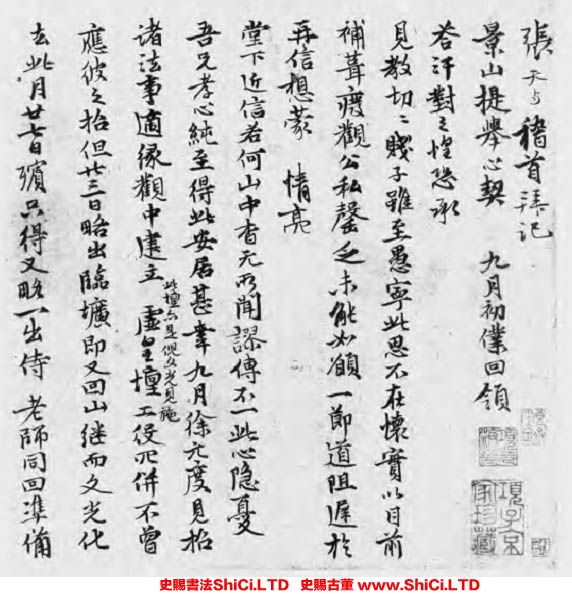 張天与稽首拜記
景山提舉心契　九月初僕回領
答汗對之惶恐承
見教切々賤子雖至愚寧此思不在懷實以目前
補葺癈觀公私罄乏未能如願一節道阻遲於
再信想蒙　情亮
堂下近信若何山中杳无所聞謬傳不一此心隱憂
吾兄孝心純至得此安居甚幸九月徐元度見招
諸法事適緣觀中建立　虛皇壇工役冗併不曾
此壇亦是倪文光見施
應彼之招但廿三日略出臨壙即又回山繼而文光化
去此月廿七日殯只得又略一出侍　老師同回準備
項子京
家珍藏
史賜書法ShiCi.LTD 史賜古董 www.ShiCi.LTD